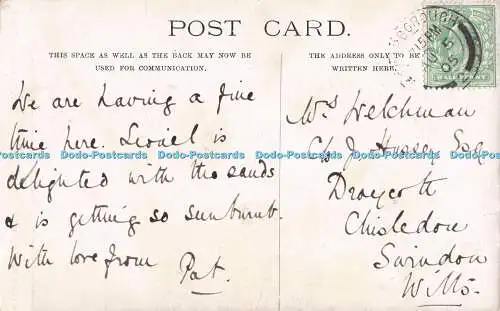 POST CARD.
THIS SPACE AS WELL AS THE BACK MAY NOW BE
USED FOR COMMUNICATION.
THE ADDRESS ONLY TO BE
WRITTEN HERE.
HALFPENNY
We are having a fine
time here. Lionel is
delighted with the sands
& is getting so sunburnt.
With love from Pat.
Mrs Welchman
C/o J. Hussey Esq
Draycott
Chisledon
Swindon
Wilts.
Dodo-Postcards Dodo-Postcards Dodo-Postcards Dodo-Postcards Dodo-Postcards